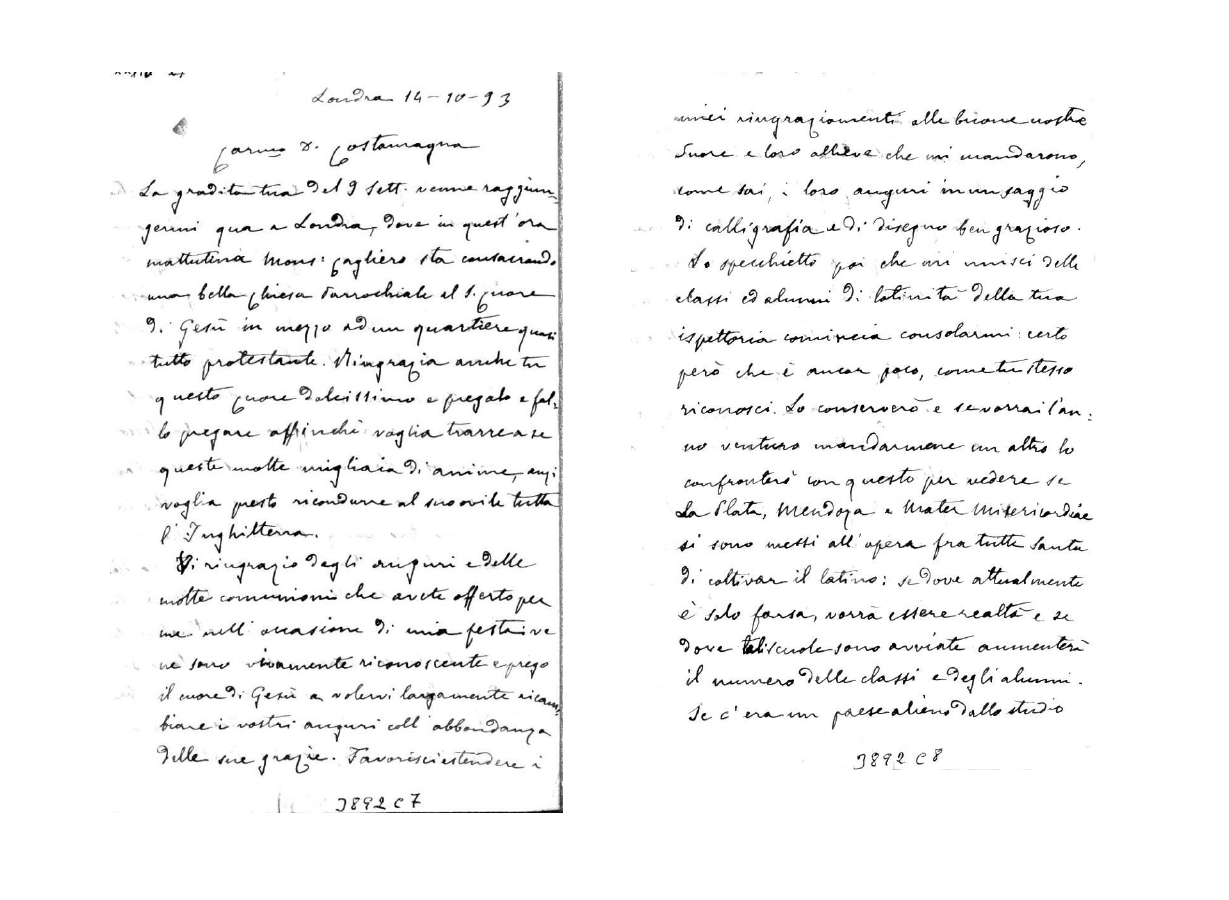 Londra 14-10-93
Carmo D. Costamagna
La gradita tua del 9 Sett. venne raggiun-
germi qua a Londra, dove in quest'ora
mattutina Mons: Cagliero sta consacrando
una bella Chiesa Parrochiale al S. Cuore
di Gesù in mezzo ad un quartiere quasi
tutto protestante. Ringrazia anche tu
questo Cuore dolcissimo e pregalo e fal-
lo pregare affinchè voglia trarre a se
queste molte migliaia di anime, anzi
voglia presto ricondurre al suo ovile tutta
l'Inghilterra.
Vi ringrazio degli auguri e delle
molte comunioni che avete offerto per
me nell'occasione di mia festa: ve
ne sono vivamente riconoscente e prego
il cuore di Gesù a volervi largamente ricam-
biare i vostri auguri coll'abbondanza
delle sue grazie. Favorisci estendere i
3892 C7
miei ringraziamenti alle buone nostre
Suore e loro allieve che mi mandarono,
come sai, i loro auguri in un saggio
di calligrafia e di disegno ben grazioso.
Lo specchietto poi che mi unisci delle
classi ed alunni di latinità della tua
ispettoria comincia consolarmi: certo
però che è ancor poco, come tu stesso
riconosci. Lo conserverò e se vorrai l'an-
no venturo mandarmene un altro lo
confronterò con questo per vedere se
La Plata, Mendoza e Mater Misericordiae
si sono messi all'opera fra tutte Santa
di coltivar il latino: se dove attualmente
è solo farsa, vorrà essere realtà e se
dove tali scuole sono avviate aumenterà
il numero delle classi e degli alunni.
Se c'era un paese alieno dallo studio
3892 C8